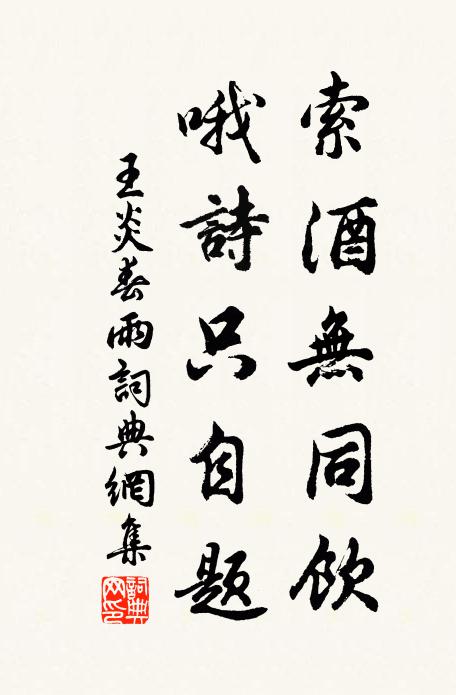 索酒無同飲
哦詩只自題
王炎春雨詞典網集
詞典網印